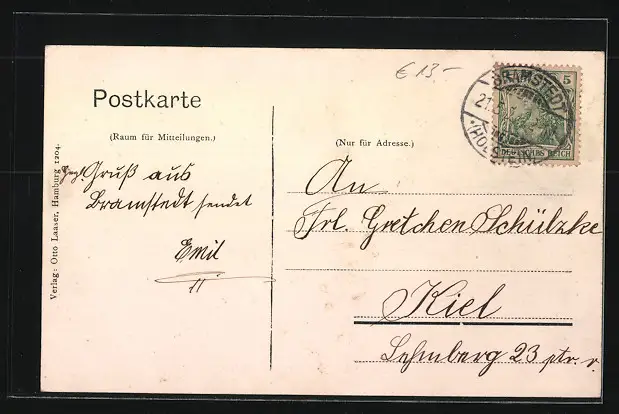 € 13.-
BRAMSTEDT
21.
(HOLSTEIN)
5
DEUTSCHES REICH
Postkarte
(Raum für Mitteilungen.)
(Nur für Adresse.)
Gruß aus
Bramstedt sendet
Emil
An
Frl. Gretchen Schülzke
Kiel
Lehmberg 23 ptr. r.
Verlag: Otto Laaser, Hamburg 1204.